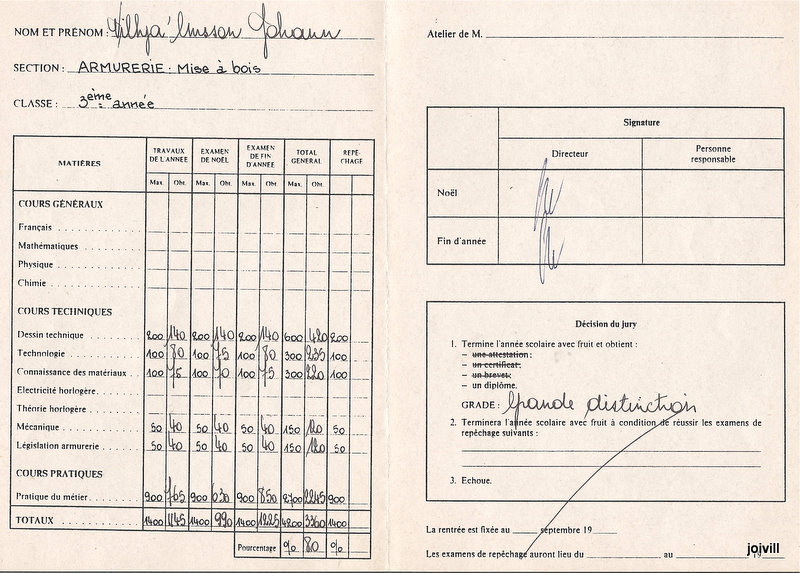 NOM ET PRÉNOM : Vilhja'lmsson Johann
SECTION : ARMURERIE : Mise à bois
CLASSE : 3ème année
MATIÈRES TRAVAUX DE L'ANNÉE EXAMEN DE NOËL EXAMEN DE FIN D'ANNÉE TOTAL GENERAL REPÊ-CHAGE
Max. Obt. Max. Obt. Max. Obt. Max. Obt.
COURS GÉNÉRAUX
Français
Mathématiques
Physique
Chimie
COURS TECHNIQUES
Dessin technique 200 140 200 140 200 140 600 420 200
Technologie 100 80 100 75 100 80 300 235 100
Connaissance des matériaux 100 75 100 70 100 75 300 220 100
Electricité horlogère
Théorie horlogère
Mécanique 50 40 50 40 50 40 150 120 50
Législation armurerie 50 40 50 40 50 40 150 120 50
COURS PRATIQUES
Pratique du métier 900 765 900 630 900 850 2700 2245 900
TOTAUX 1400 1145 1400 990 1400 1225 4200 3360 1400
Pourcentage % 80 %
Atelier de M.
Signature
Directeur Personne responsable
Noël
Fin d'année
Décision du jury
1. Termine l'année scolaire avec fruit et obtient :
– une attestation;
– un certificat;
– un brevet;
– un diplôme.
GRADE : Grande distinction
2. Terminera l'année scolaire avec fruit à condition de réussir les examens de
repêchage suivants :
3. Echoue.
La rentrée est fixée au septembre 19
Les examens de repêchage auront lieu du au
jojvill